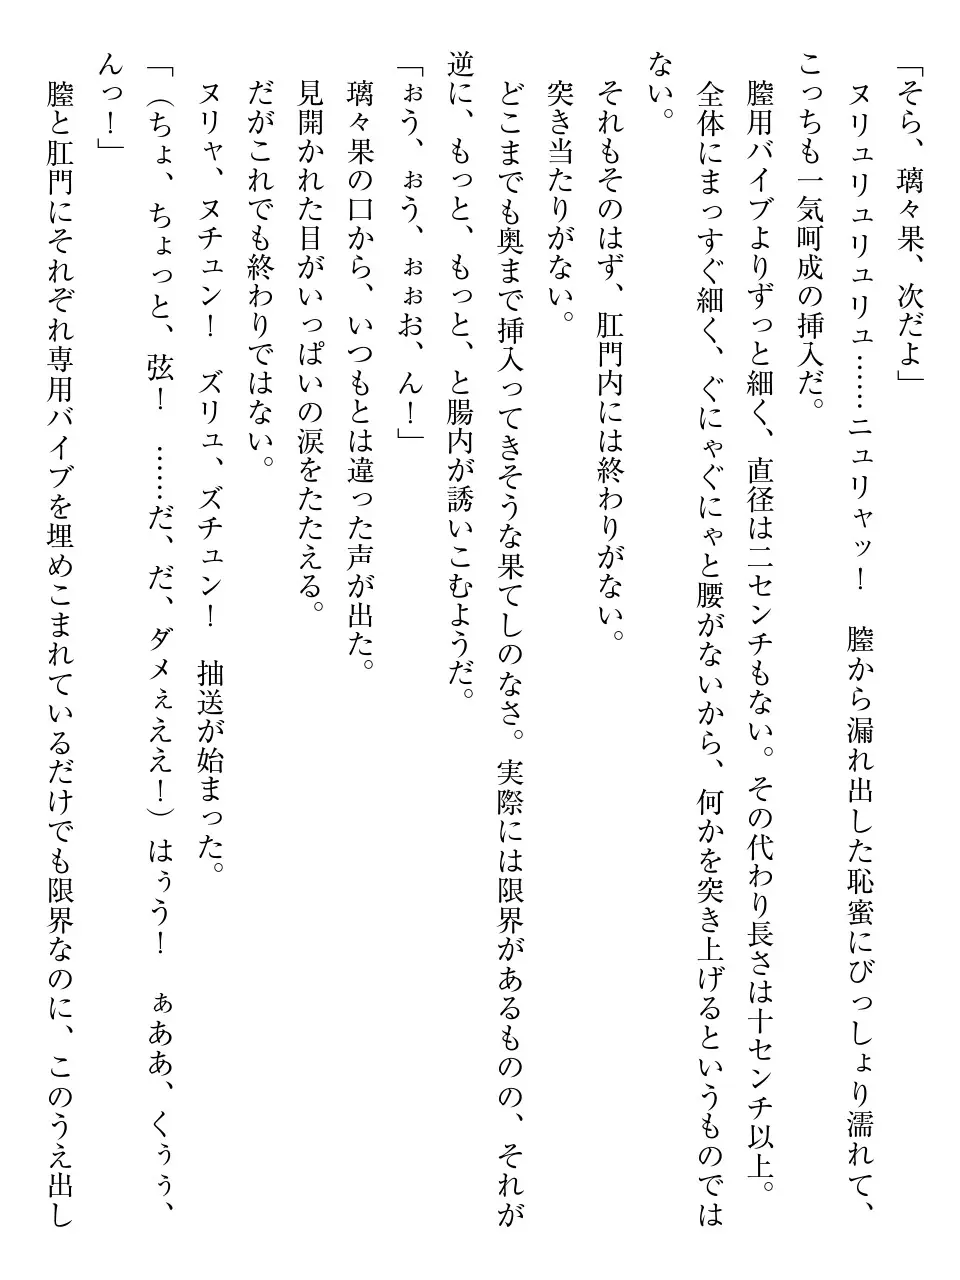 「そら、璃々果、次だよ」
　ヌリュリュリュリュ……ニュリャッ！　膣から漏れ出した恥蜜にびっしょり濡れて、
こっちも一気呵成の挿入だ。
　膣用バイブよりずっと細く、直径は二センチもない。その代わり長さは十センチ以上。
　全体にまっすぐ細く、ぐにゃぐにゃと腰がないから、何かを突き上げるというものでは
ない。
　それもそのはず、肛門内には終わりがない。
　突き当たりがない。
　どこまでも奥まで挿入ってきそうな果てしのなさ。実際には限界があるものの、それが
逆に、もっと、もっと、と腸内が誘いこむようだ。
「ぉう、ぉう、ぉぉお、ん！」
　璃々果の口から、いつもとは違った声が出た。
　見開かれた目がいっぱいの涙をたたえる。
　だがこれでも終わりではない。
　ヌリャ、ヌチュン！　ズリュ、ズチュン！　抽送が始まった。
「（ちょ、ちょっと、弦！　……だ、だ、ダメぇええ！）はぅう！　ぁああ、くぅぅ、
んっ！」
　膣と肛門にそれぞれ専用バイブを埋めこまれているだけでも限界なのに、このうえ出し